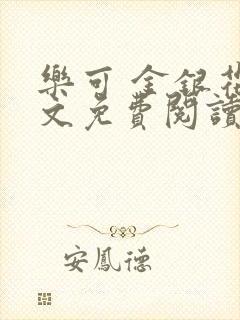 樂可 金銀花
文免費閱讀
安鳳德